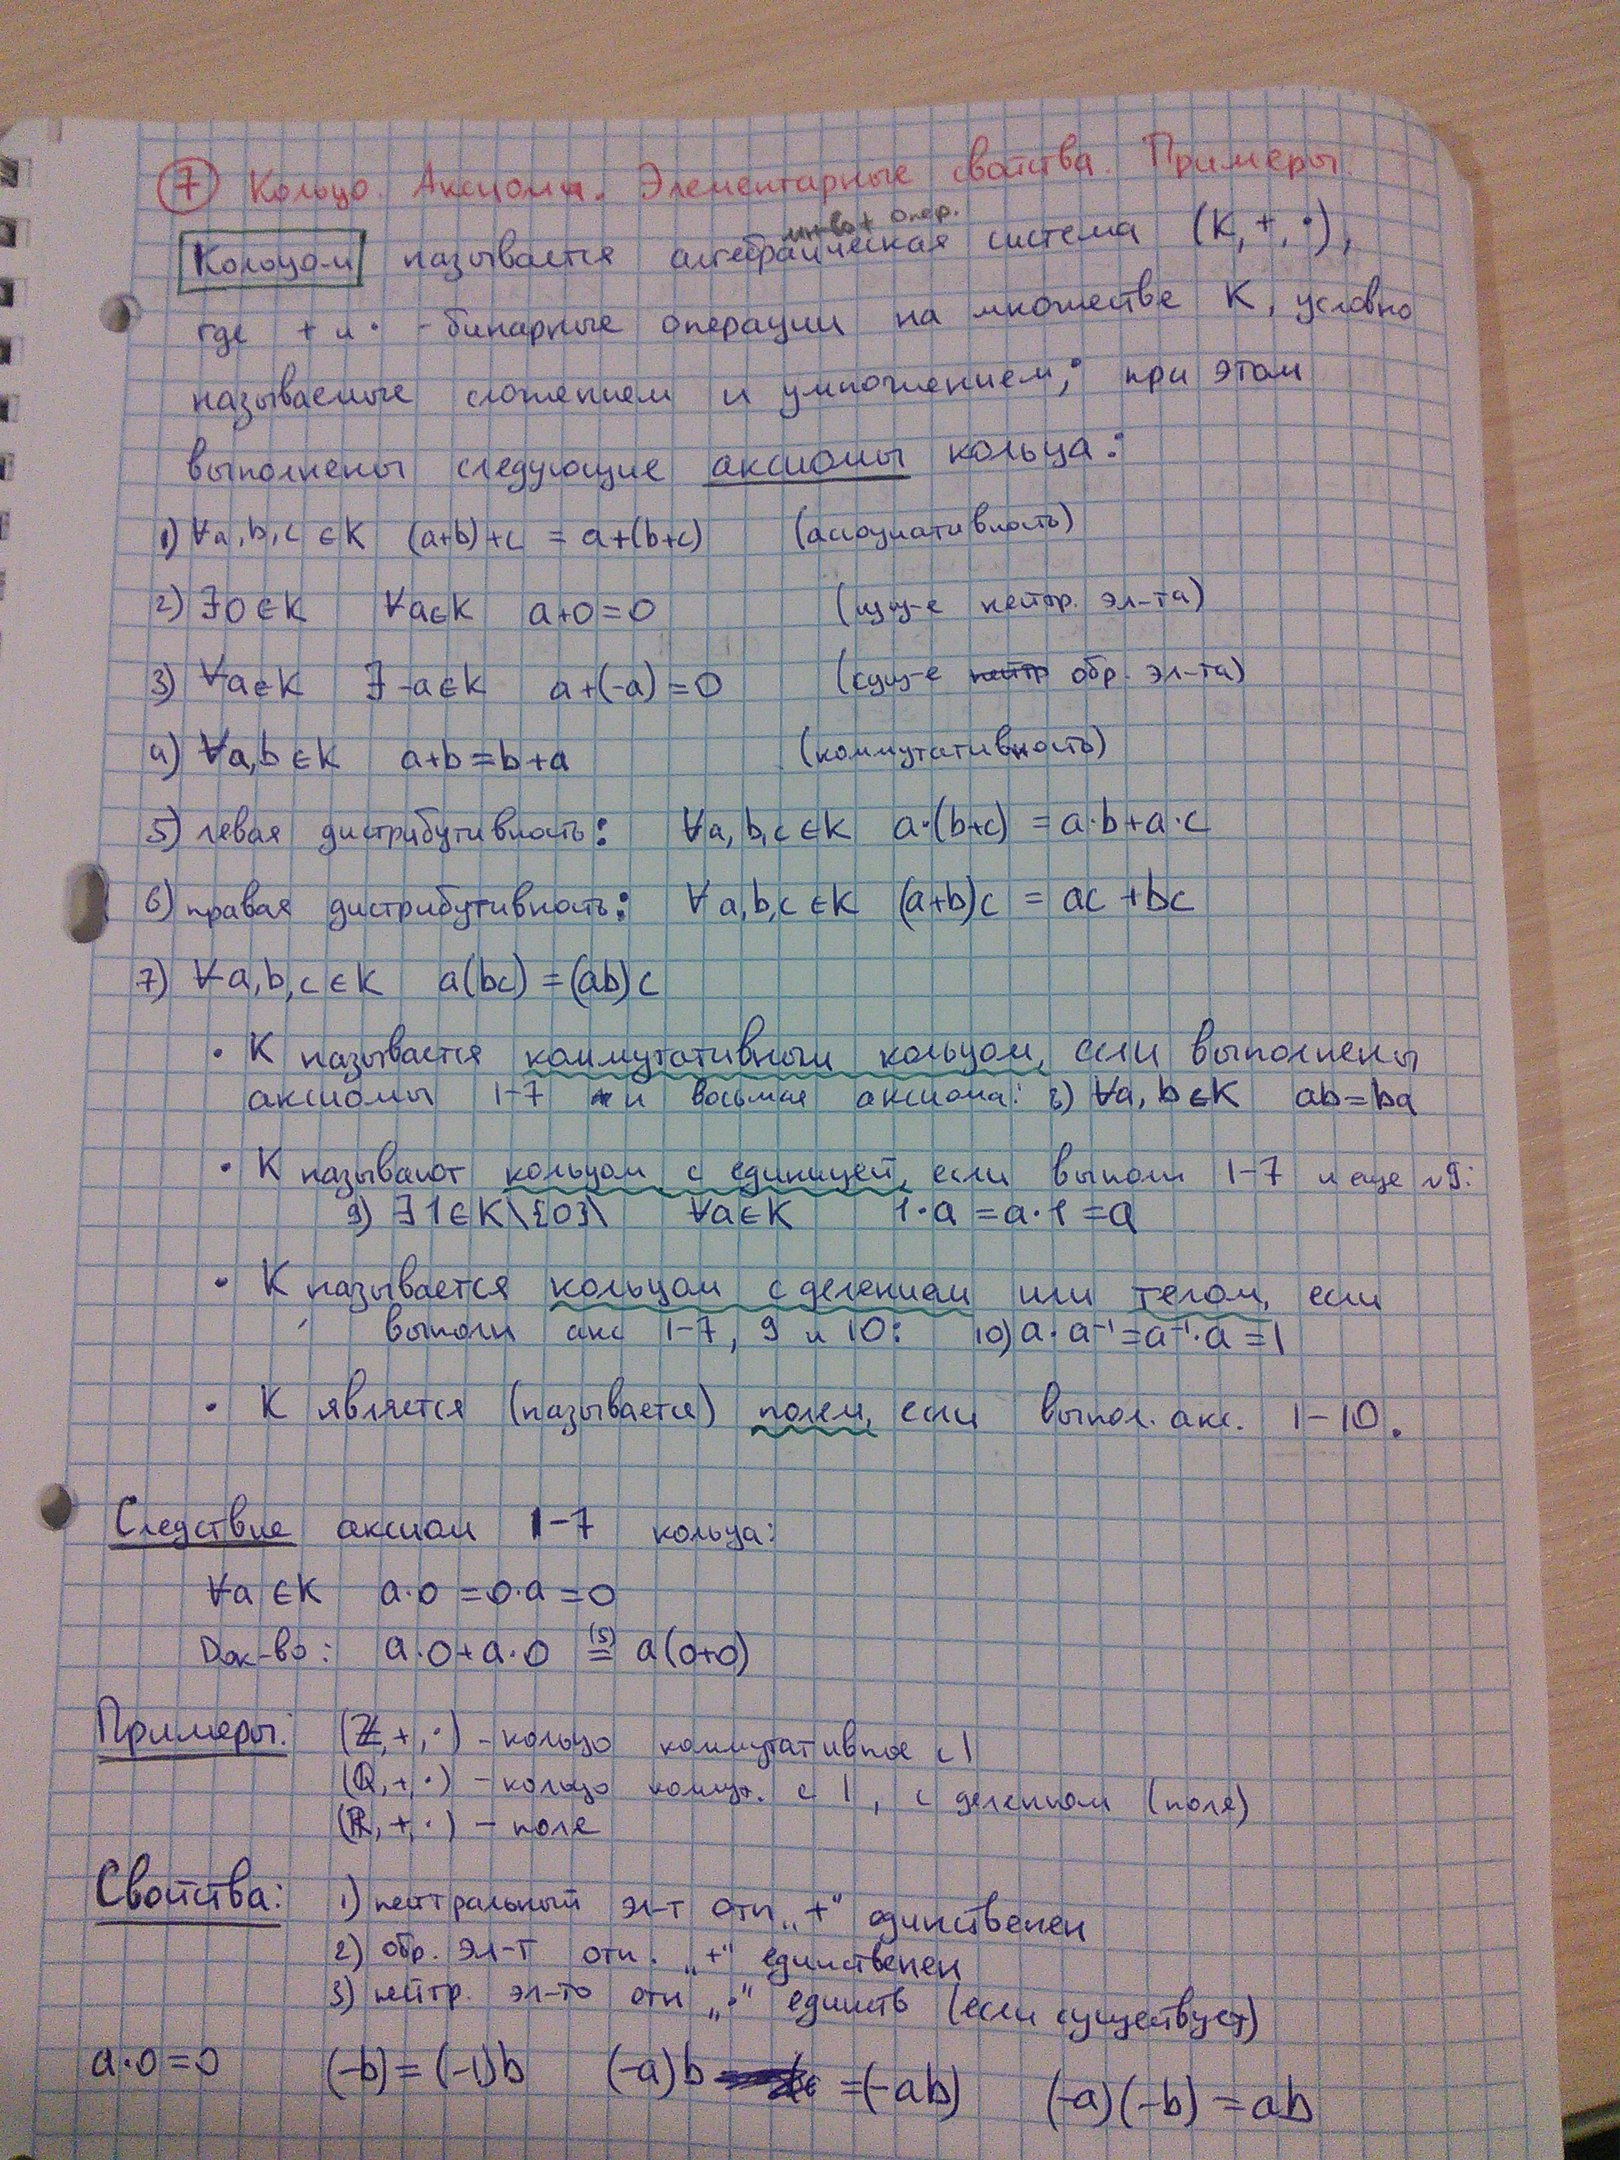 7 Кольцо. Аксиомы. Элементарные свойства. Примеры.
мн-во + опер.
Кольцом называется алгебраическая система (K, +, ·),
где + и · - бинарные операции на множестве K, условно
называемые сложением и умножением; при этом
выполнены следующие аксиомы кольца:
1) ∀a,b,c ∈ K (a+b)+c = a+(b+c) (ассоциативность)
2) ∃0 ∈ K ∀a∈K a+0=0 (сущ-е нейтр. эл-та)
3) ∀a∈K ∃ -a∈K a+(-a)=0 (сущ-е нейтр обр. эл-та)
4) ∀a,b ∈ K a+b=b+a (коммутативность)
5) левая дистрибутивность: ∀a,b,c ∈ K a·(b+c) = a·b+a·c
6) правая дистрибутивность: ∀a,b,c ∈ K (a+b)c = ac+bc
7) ∀a,b,c ∈ K a(bc)=(ab)c
· K называется коммутативным кольцом, если выполнены
аксиомы 1-7 и восьмая аксиома: 8) ∀a,b∈K ab=ba
· K называют кольцом с единицей, если выполн 1-7 и еще №9:
9) ∃1∈K\{0}\ ∀a∈K 1·a=a·1=a
· K называется кольцом с делением или телом, если
выполн акс 1-7, 9 и 10: 10) a·a⁻¹=a⁻¹·a=1
· K является (называется) полем, если выпол. акс. 1-10.
Следствие аксиом 1-7 кольца:
∀a ∈ K a·0=0·a=0
Док-во: a·0+a·0 (5)= a(0+0)
Примеры: (ℤ,+,·) - кольцо коммутативное с 1
(ℚ,+,·) - кольцо коммут. с 1, с делением (поле)
(ℝ,+,·) - поле
Свойства: 1) нейтральный эл-т отн „+" единственен
2) обр. эл-т отн. „+" единственен
3) нейтр. эл-то отн „·" единств (если существует)
a·0=0 (-b)=(-1)b (-a)b =(-ab) (-a)(-b)=ab